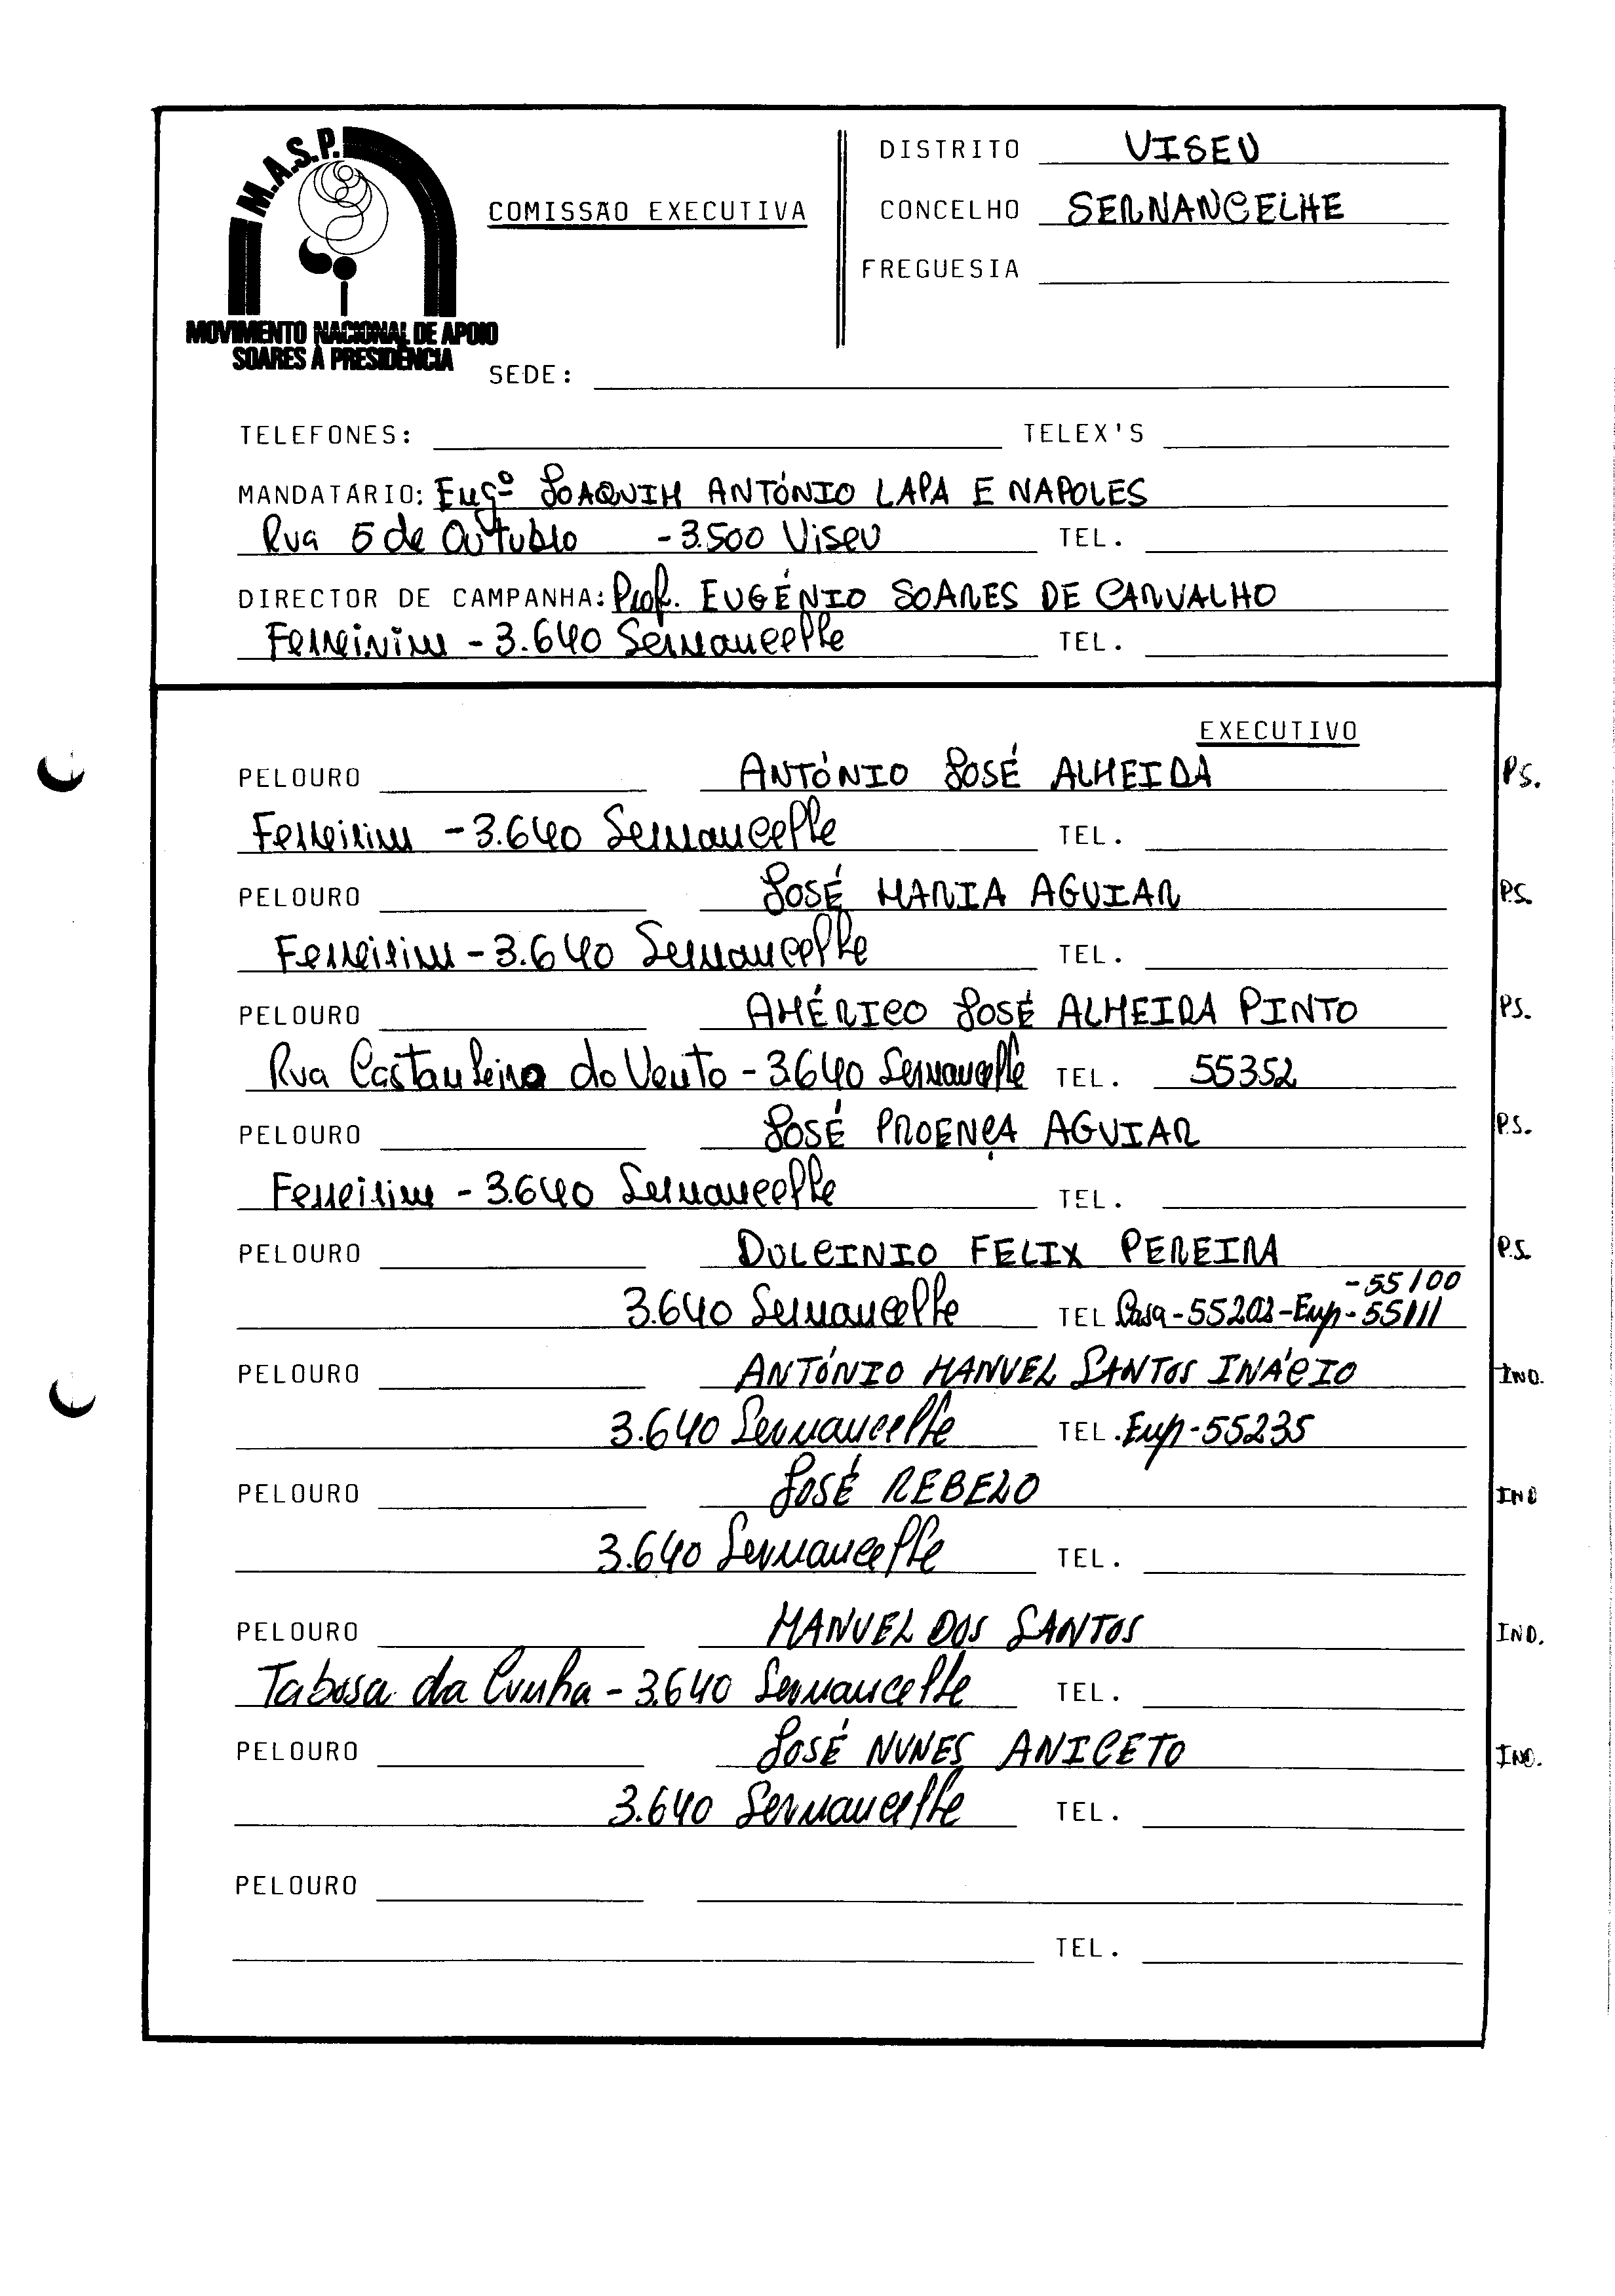 M.A.S.P.
MOVIMENTO NACIONAL DE APOIO
SOARES À PRESIDÊNCIA
COMISSÃO EXECUTIVA
DISTRITO VISEU
CONCELHO SERNANCELHE
FREGUESIA
SEDE:
TELEFONES: TELEX'S
MANDATÁRIO: Engº JOAQUIM ANTÓNIO LAPA E NAPOLES
Rua 5 de Outubro - 3.500 Viseu TEL.
DIRECTOR DE CAMPANHA: Prof. EUGÉNIO SOARES DE CARVALHO
Ferreirim - 3.640 Sernancelhe TEL.
EXECUTIVO
PELOURO ANTÓNIO JOSÉ ALMEIDA P.S.
Ferreirim - 3.640 Sernancelhe TEL.
PELOURO JOSÉ MARIA AGUIAR P.S.
Ferreirim - 3.640 Sernancelhe TEL.
PELOURO AMÉRICO JOSÉ ALMEIDA PINTO P.S.
Rua Castanheiro do Vento - 3640 Sernancelhe TEL. 55352
PELOURO JOSÉ PROENÇA AGUIAR P.S.
Ferreirim - 3.640 Sernancelhe TEL.
PELOURO DULCINIO FELIX PEREIRA P.S.
- 55100
3.640 Sernancelhe TEL Casa - 55202 - Emp - 55111
PELOURO ANTÓNIO MANUEL SANTOS INÁCIO IND.
3.640 Sernancelhe TEL. Emp - 55235
PELOURO JOSÉ REBELO IND
3.640 Sernancelhe TEL.
PELOURO MANUEL DOS SANTOS IND.
Tabosa da Cunha - 3.640 Sernancelhe TEL.
PELOURO JOSÉ NUNES ANICETO IND.
3.640 Sernancelhe TEL.
PELOURO
TEL.